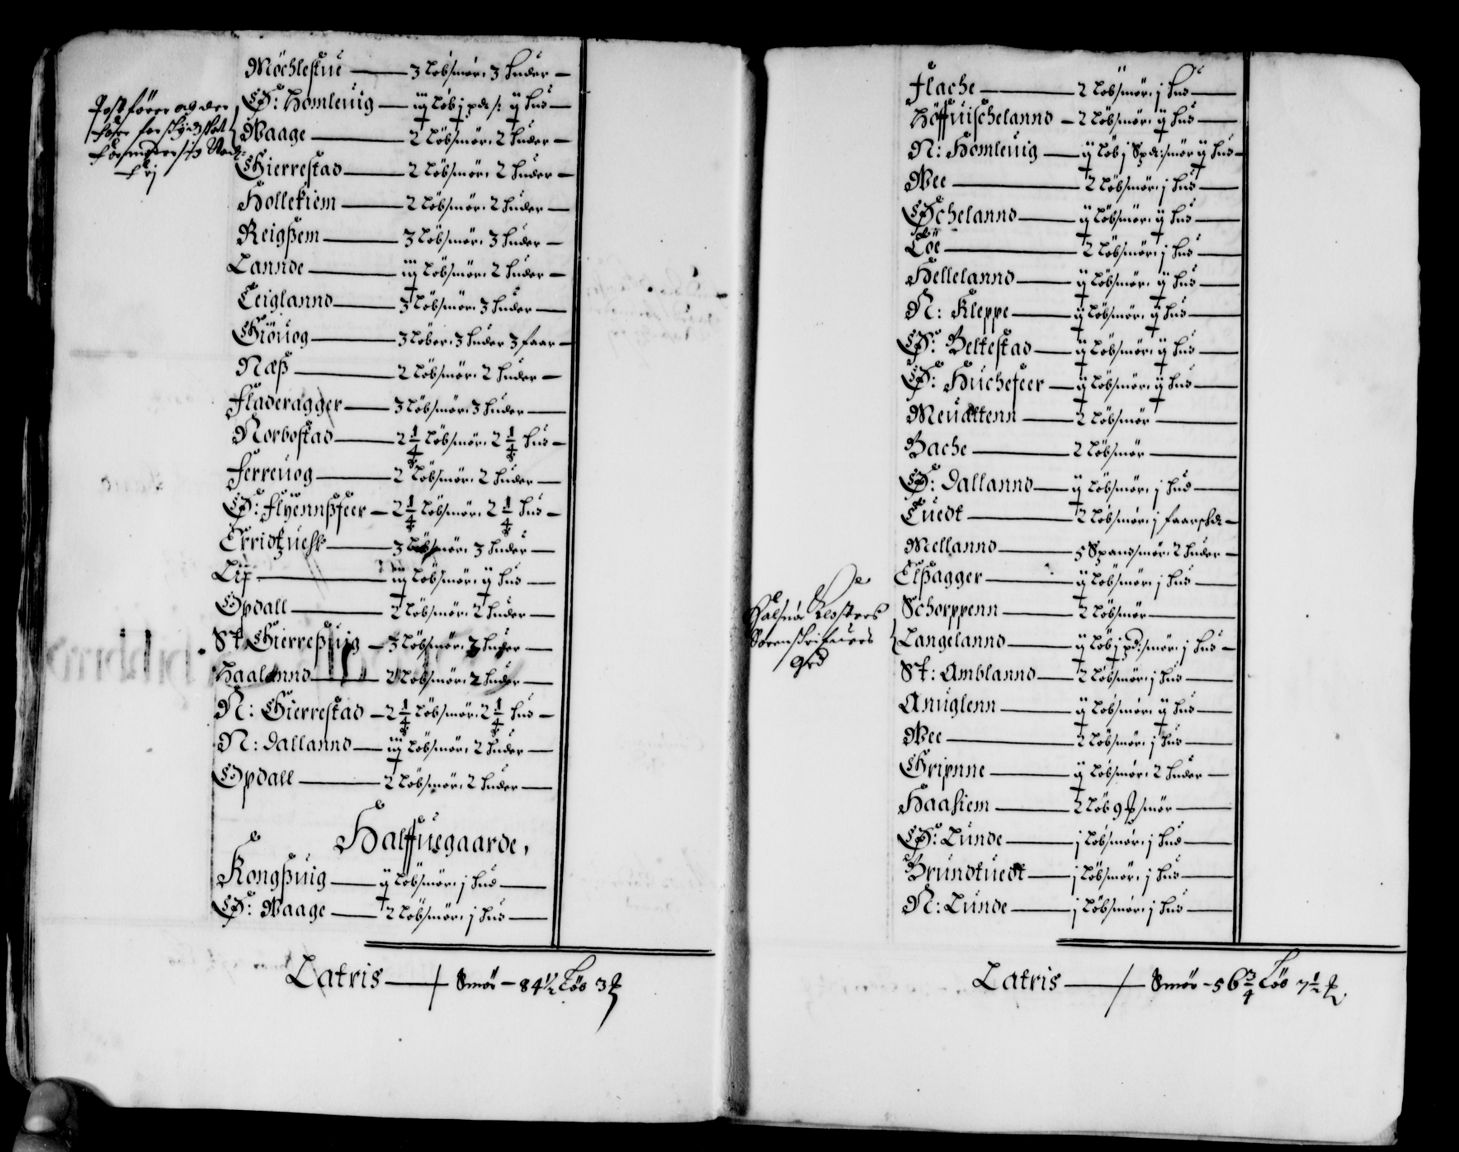 Møchlestue — 3 Løbsmør: 3 huder —
S: Homleuig — iij Løb j pd s: ij hud —
Waage — 2 Løbsmør: 2 huder —
Gierrestad — 2 Løbsmør: 2 huder —
Hollekiem — 2 Løbsmør: 2 huder —
Reigßem — 3 Løbsmør: 3 huder —
Lannde — iij Løbsmør: 2 huder —
Teiglannd — 3 Løbsmør: 3 huder —
Giøuog — 3 Løber: 3 huder 3 faar —
Næß — 2 Løbsmør: 2 huder —
Fladeragger — 3 Løbsmør: 3 huder —
Norbostad — 2 1/4 Løbsmør: 2 1/4 hud —
Ferreuog — 2 Løbsmør: 2 huder —
S: Flyennßfeer — 2 1/4 Løbsmør: 2 1/4 hud —
3 Løbsmør: 3 huder —
iij Løbsmør: ij hud —
Opdall — 2 Løbsmør: 2 huder —
St: Gierreßuig — 3 Løbsmør: 3 huder —
Haalannd — 2 Løbsmør: 2 huder —
N: Gierrestad — 2 1/4 Løbsmør: 2 1/4 hud —
N: Dallannd — iij Løbsmør: 2 huder —
Opdall — 2 Løbsmør: 2 huder —
Halffuegaarde,
Kongßuig — ij Løbsmør: j hud —
S: Waage — 2 Løbsmør: j hud —
Latris — Smør — 84 ½ Løb 3
Flache — 2 Løbsmør: j hud —
Høffuischelannd — 2 Løbsmør: ij hud —
N: Homleuig — ij Løb j Spd: smør ij hud —
Wee — 2 Løbsmør: j hud —
Schelannd — ij Løbsmør: ij hud —
Løe — 2 Løbsmør: j hud —
Hellelannd — ij Løbsmør: ij hud —
N: Kleppe — ij Løbsmør: ij hud —
S: Beltestad — ij Løbsmør: ij hud —
S: Huchefeer — ij Løbsmør: ij hud —
Meuattenn — 2 Løbsmør —
Bache — 2 Løbsmør —
S: Dallannd — ij Løbsmør: j hud —
Tuedt — 2 Løbsmør: j faarschd —
Mellannd — 5 Spandsmør: 2 huder —
Elßagger — ij Løbsmør: j hud —
Schorppenn — 2 Løbsmør —
Halsnøe Closters
Langelannd — ij Løb j pd: smør: j hud —
St: Amblannd — 2 Løbsmør: j hud —
Anuglenn — ij Løbsmør: ij hud —
Wee — 2 Løbsmør: j hud —
Gripnne — ij Løbsmør: 2 huder —
Haasiem — 2 Løb 9 smør —
S: Lunde — j Løbsmør: j hud —
Brundtuedt — j Løbsmør: j hud —
N: Lunde — j Løbsmør: j hud —
Latris — Smør — 56 3/4 Løb 7 ½